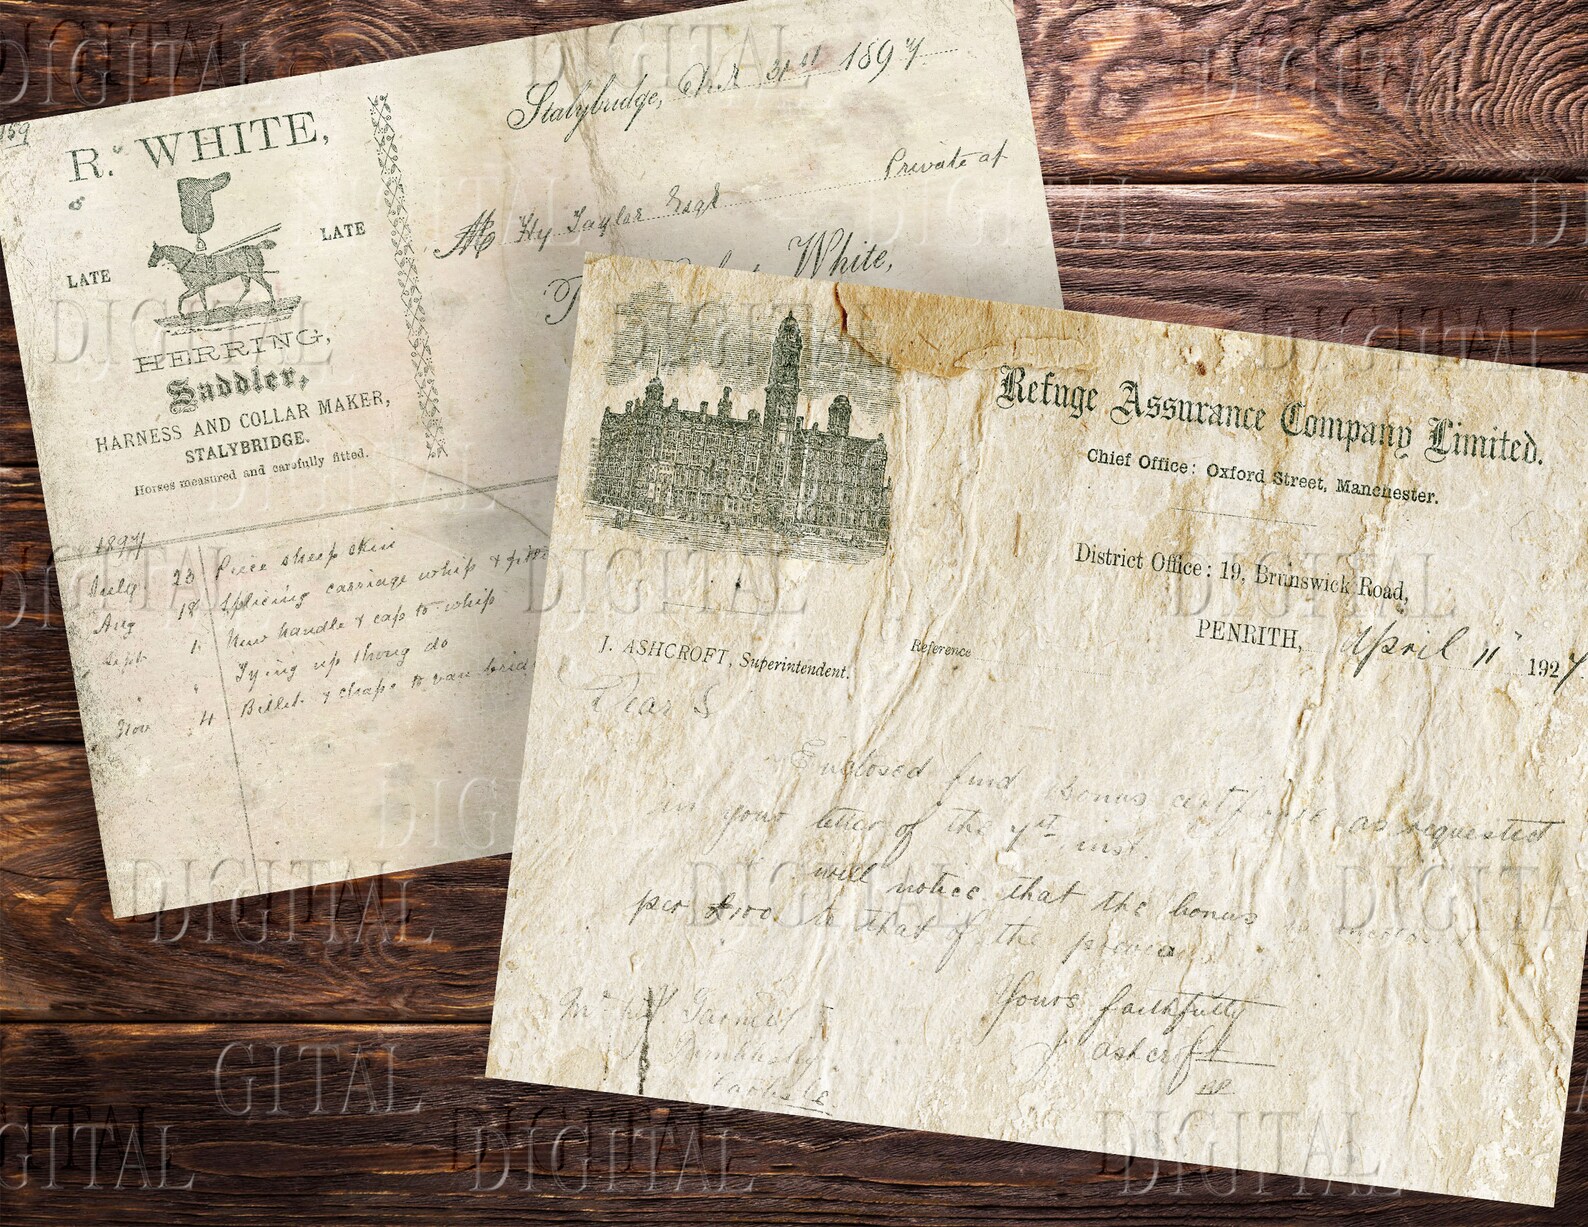 159
R. WHITE,
LATE
LATE
HERRING,
Saddler,
HARNESS AND COLLAR MAKER,
STALYBRIDGE.
Horses measured and carefully fitted.
Stalybridge, 31st 1897
Private a/
Mr Hy. Taylor Esqr
White,
1897
July 23 Piece sheep skin
Aug 18 Splicing carriage whip &
Sept 1 New handle & cap to whip
" Tying up thong do
Nov 4 Billet & chape to van
Refuge Assurance Company Limited.
Chief Office: Oxford Street, Manchester.
District Office: 19, Brunswick Road,
PENRITH, April 11" 1927.
J. ASHCROFT, Superintendent.
Reference
Dear S
Enclosed find bonus certificate as requested
in your letter of the inst.
will notice that the bonus
per £100 to that of the previous
Yours faithfully
J Ashcroft
Carlisle
DIGITAL
DIGITAL
DIGITAL
DIGITAL
DIGITAL
DIGITAL
DIGITAL
DIGITAL
DIGITAL
DIGITAL
DIGITAL
GITAL
GITAL
DIGITAL
DIGITAL